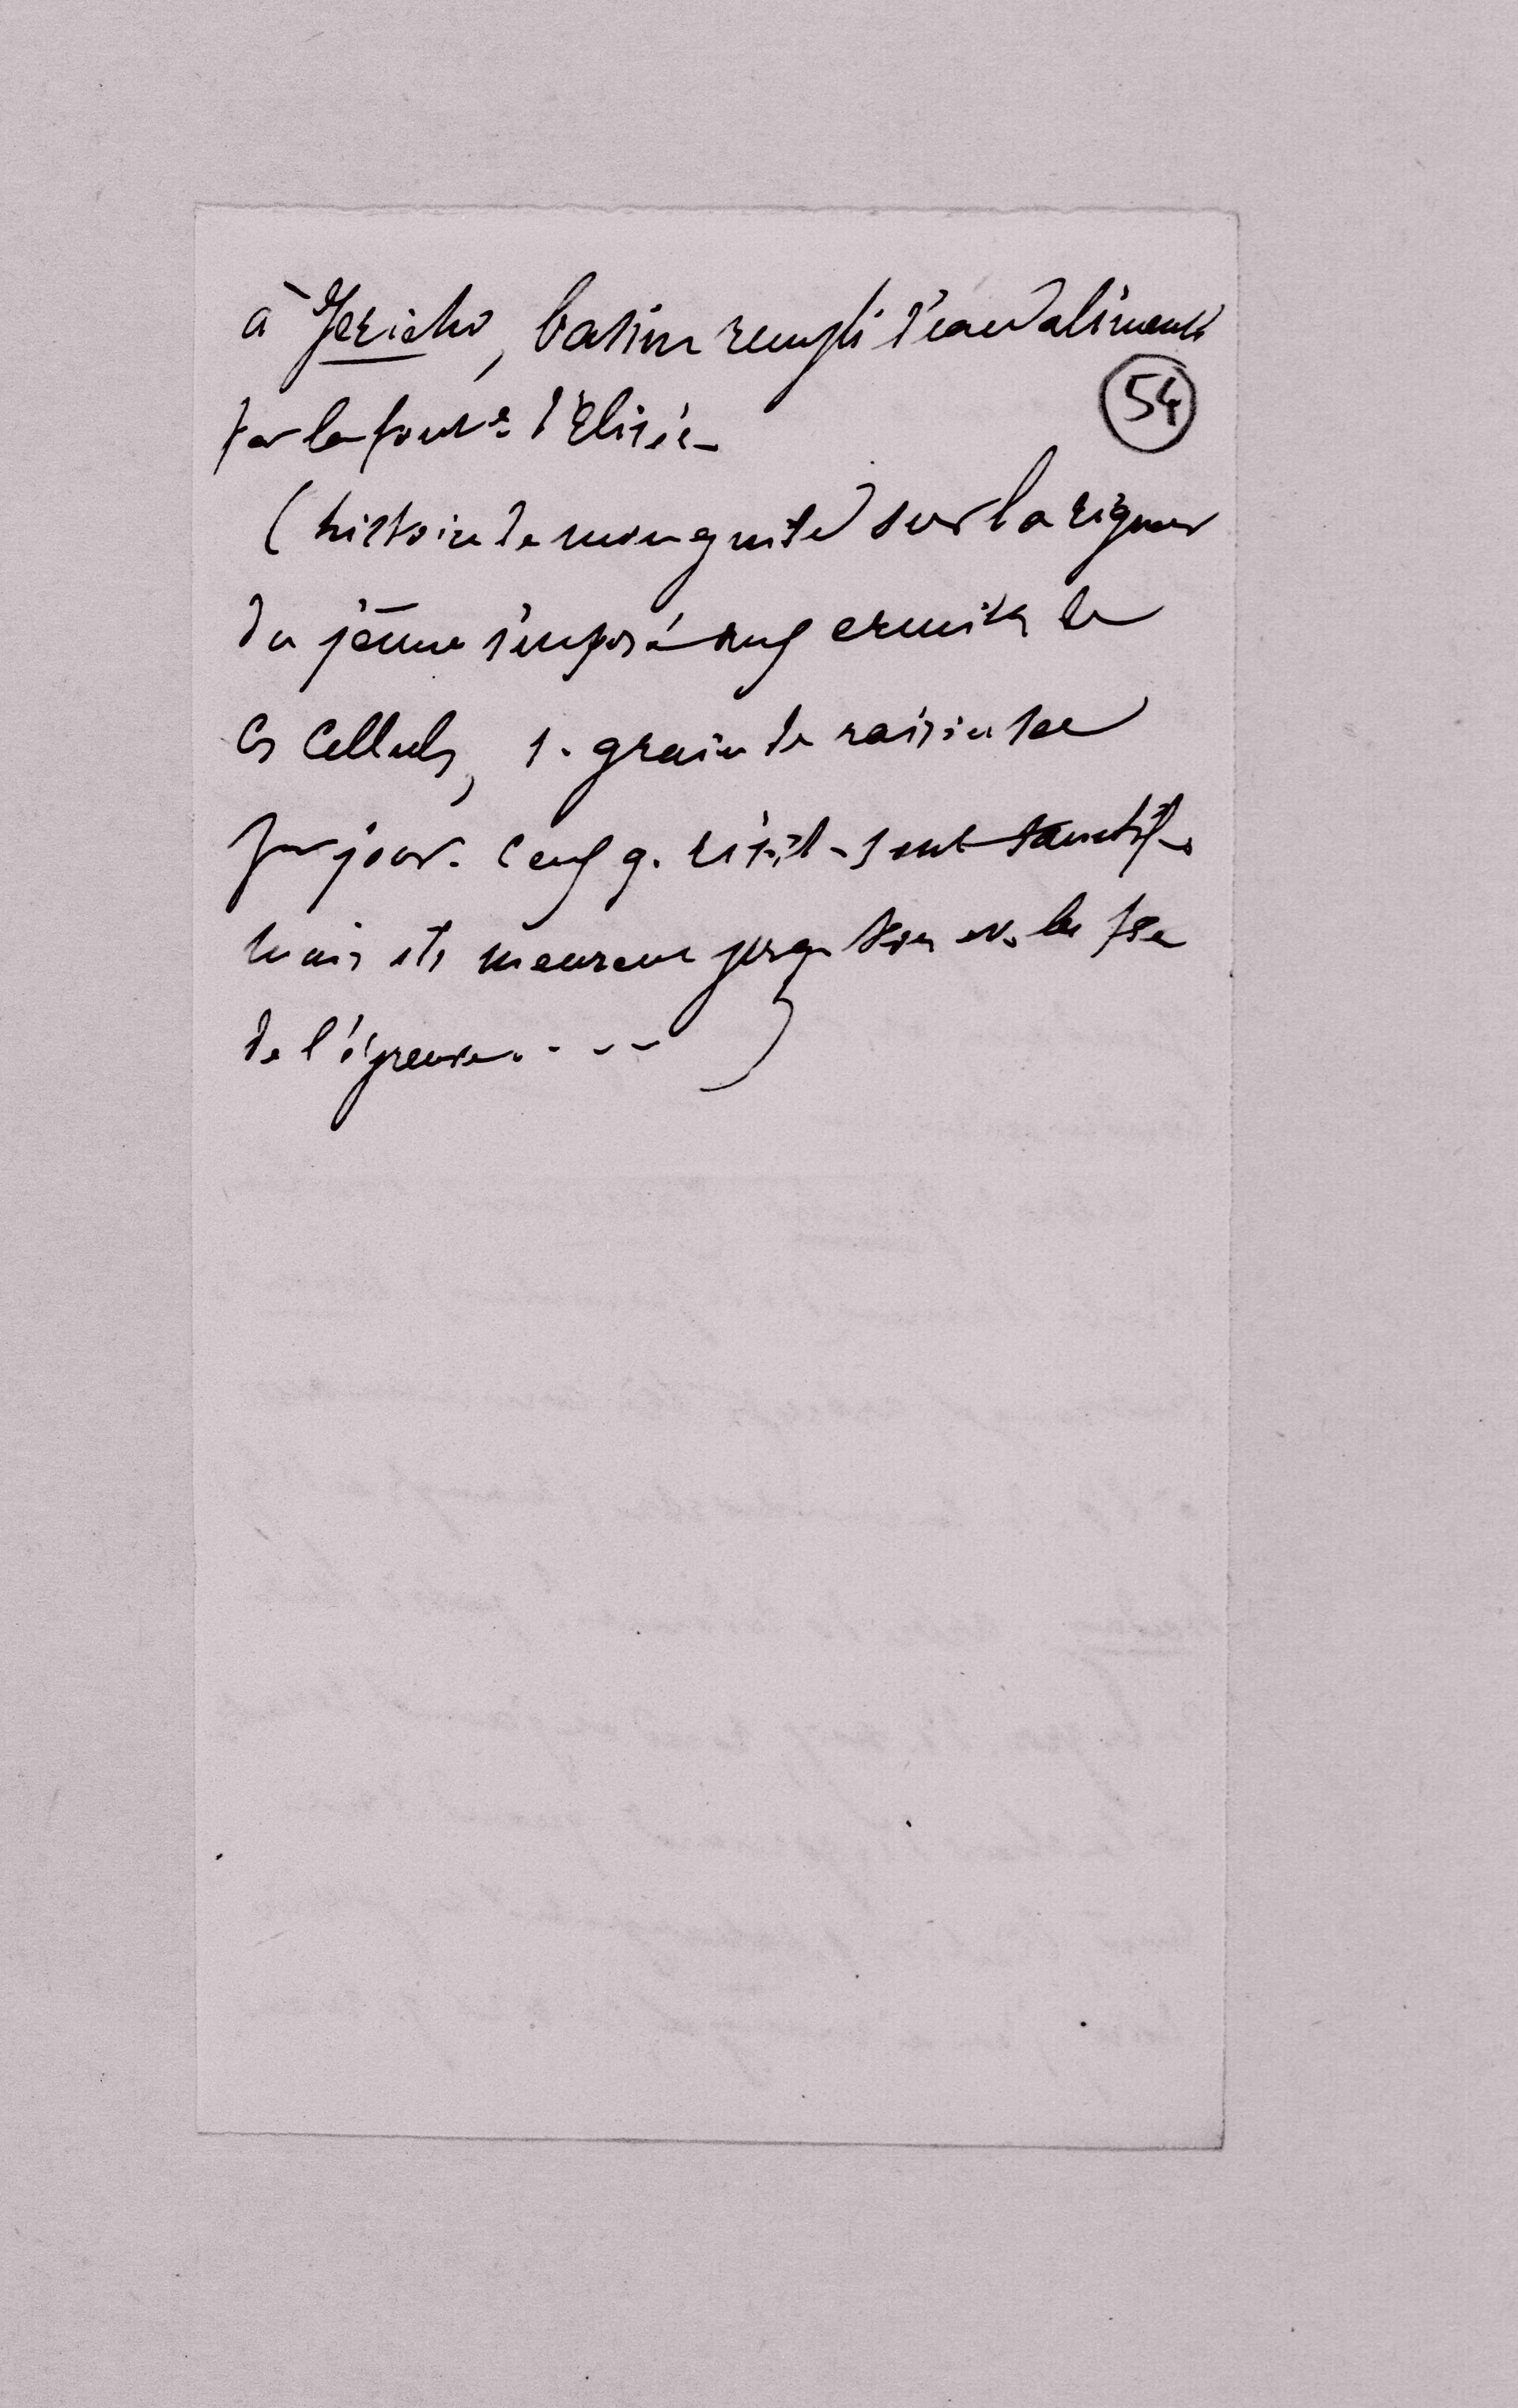 à Jericho, bassin rempli d'eau alimenté
54
par la font^e d'Elisée
(histoire de mon guide sur la rigueur
du jeûne imposé aux ermites de
ces cellules, 1. grain de raisin sec
par jour. Ceux q. résist- sont sanctifiés
mais ils meurent presque tous av. la fin
de l'épreuve. - - -)